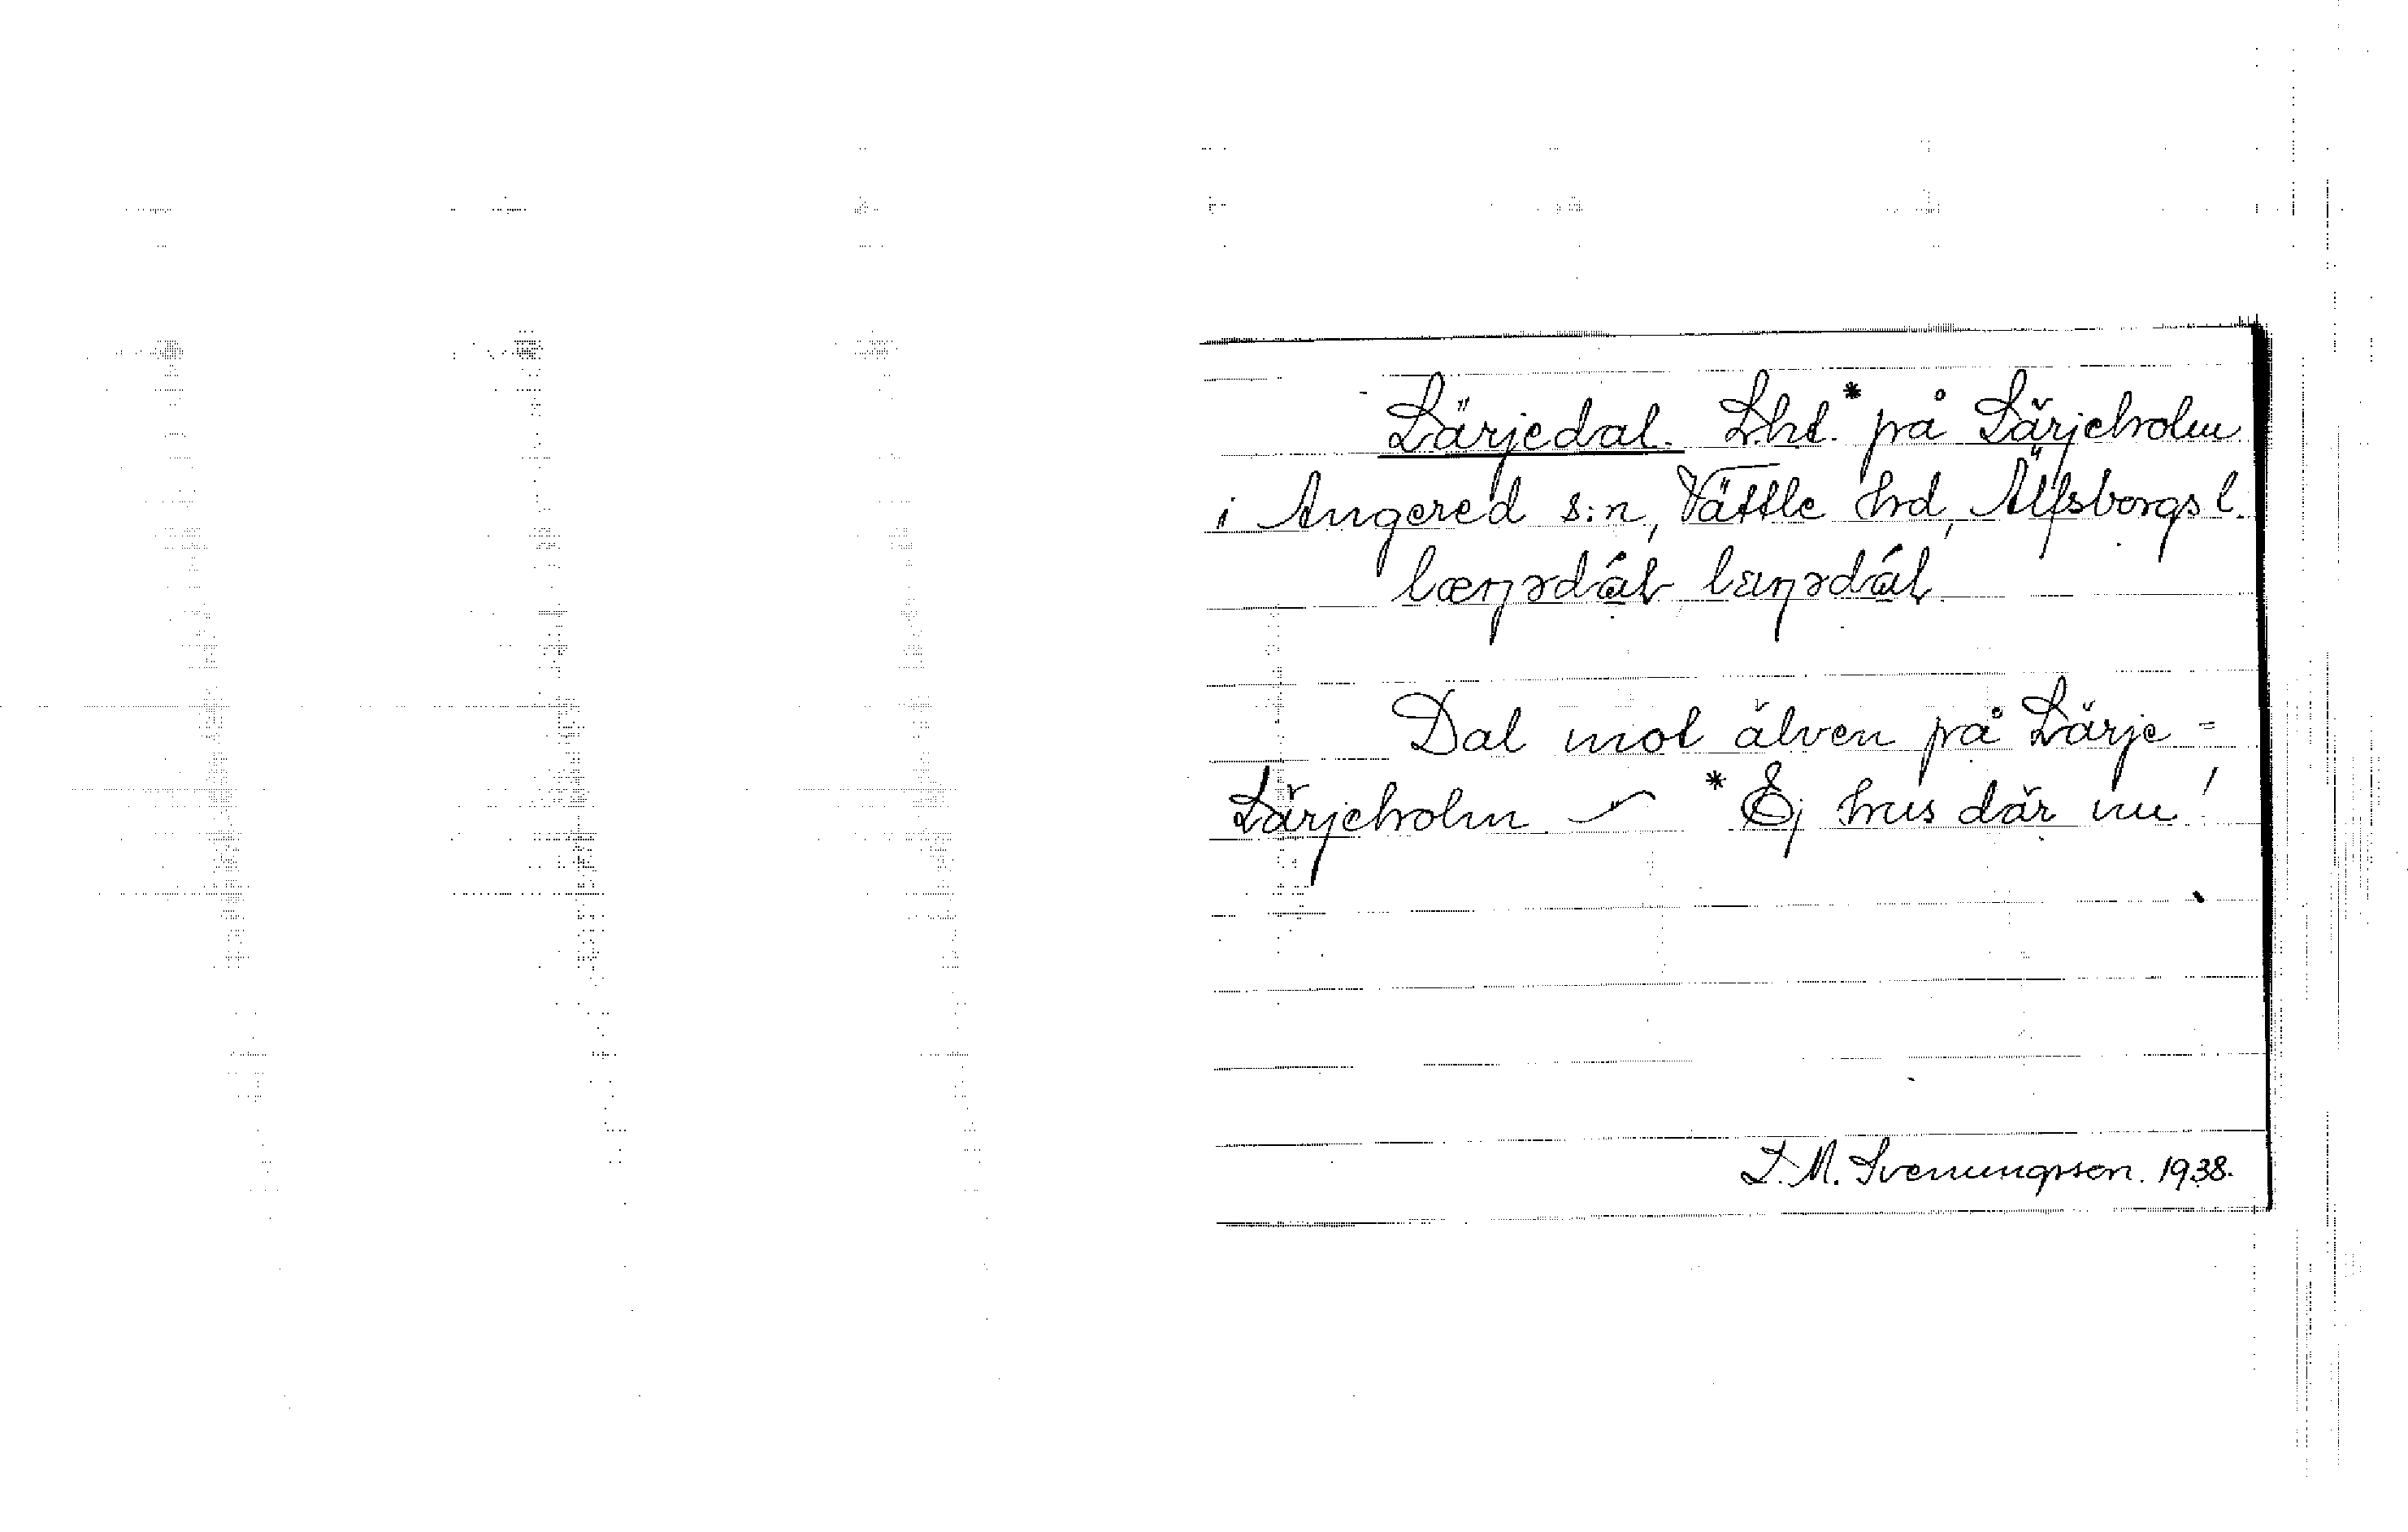 Lärjedal. Lht.* på Lärjeholm
i Angered s:n, Vättle hrd, Älfsborgs l.
Dal mot älven på Lärje=
Lärjeholm *Ej hus där nu!
S. M. Svenungsson. 1938.